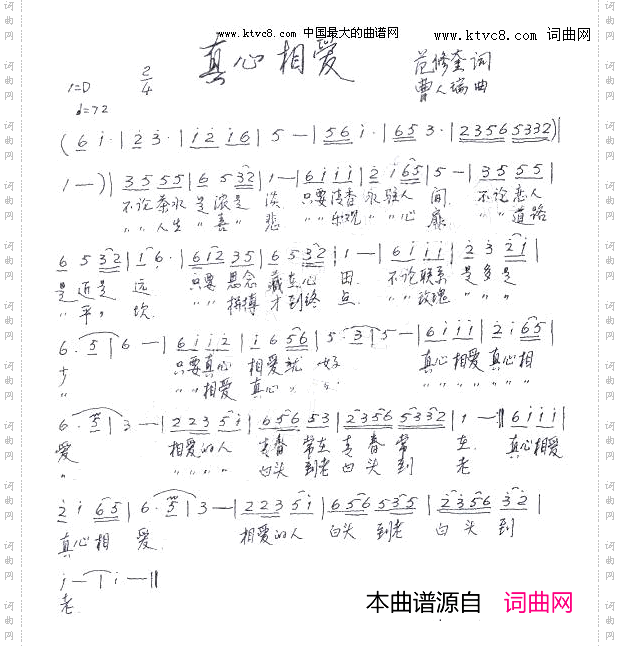 www.ktvc8.com 中国最大的曲谱网
www.ktvc8.com 词曲网
真心相爱
范修奎词
曹人瑞曲
1=D 2/4
♩=72
(6 i·|2 3·|i 2 i 6|5 —|5 6 i·|6 5 3·|2 3 5 6 5 3 3 2)|
1 —)|3 5 5 5|6 5 3 2|1 —|6 i i i|2 i 6 5|5 —|3 5 5 5|
不论茶水 是浓是 淡 只要清香 永驻人 间 不论恋人
〃〃人生 〃喜〃 悲 〃〃乐观 〃〃心 扉 〃〃道路
6 5 3 2|i 6·|6 i 2 3 5|6 5 3 2|1 —|6 i i i|2 3 2 i|
是近是 远 只要思念 藏在心 田 不论联系 是多是
〃平〃 坎 〃〃拼搏 才到终 点 〃〃玫瑰 〃〃〃
6· 5|6 —|6 i i 2|i 6 5 6|5· 3|5 —|6 i i i|2 i 6 5|
少 只要真心 相爱就 好 真心相爱 真心相
〃 〃〃相爱 真心〃 〃 〃〃〃〃 〃〃〃
6· 5|3 —|2 2 3 5 i|6 5 6 5 3|2 3 5 6 5 3 3 2|1 —‖6 i i i|
爱 相爱的人 青春 常在 青春 常 在 真心相爱
〃 〃〃〃〃 白头 到老 白头 到 老
2 i 6 5|6· 5|3 —|2 2 3 5 i|6 5 6 5 3 5|2 3 5 6 3 2|
真心相 爱 相爱的人 白头 到老 白头 到
i —|i —‖
老
本曲谱源自 词曲网
词曲网